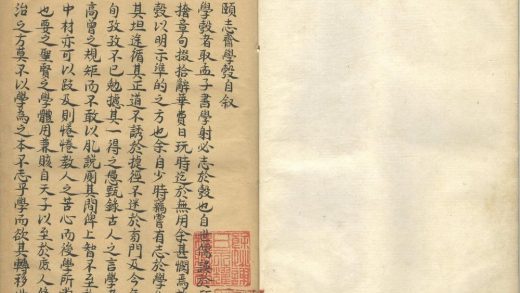 頤志齋學彀自敘
學彀者取孟子書學射必志於彀也自世儒誤於
章句掇拾辭華費日玩時迄於無用余甚憫焉
彀以明示準的之方也余自少時竊嘗有志於學
其坦逵循其正道不誘於捷徑不迷於旁門及今年
旬孜孜不已勉攄其一得之愚甄錄古人之言學
高曾之規矩而不敢以肊說廁其間俾上智不至
中材亦可以跂及則惓惓教人之苦心而後學所
也要之聖賢之學體用兼賅自天子以至於庶人
治之方莫不以學為之本不志乎學而欲其轉移